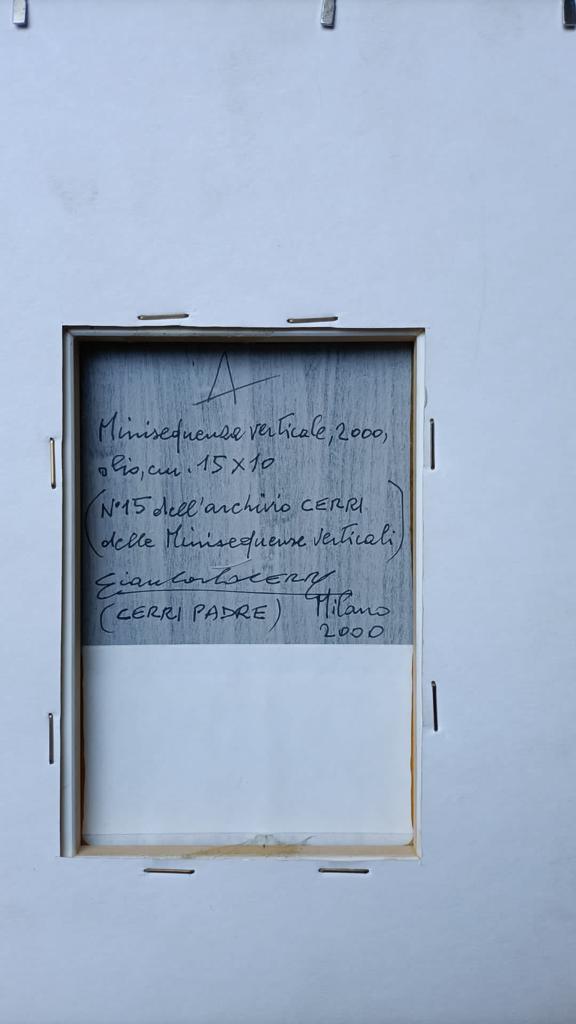 A
Minisequenza verticale, 2000,
olio, cm. 15 x 10
(N°15 dell'archivio CERRI
delle Minisequenze verticali)
Giancarlo CERRI
(CERRI PADRE) Milano
2000